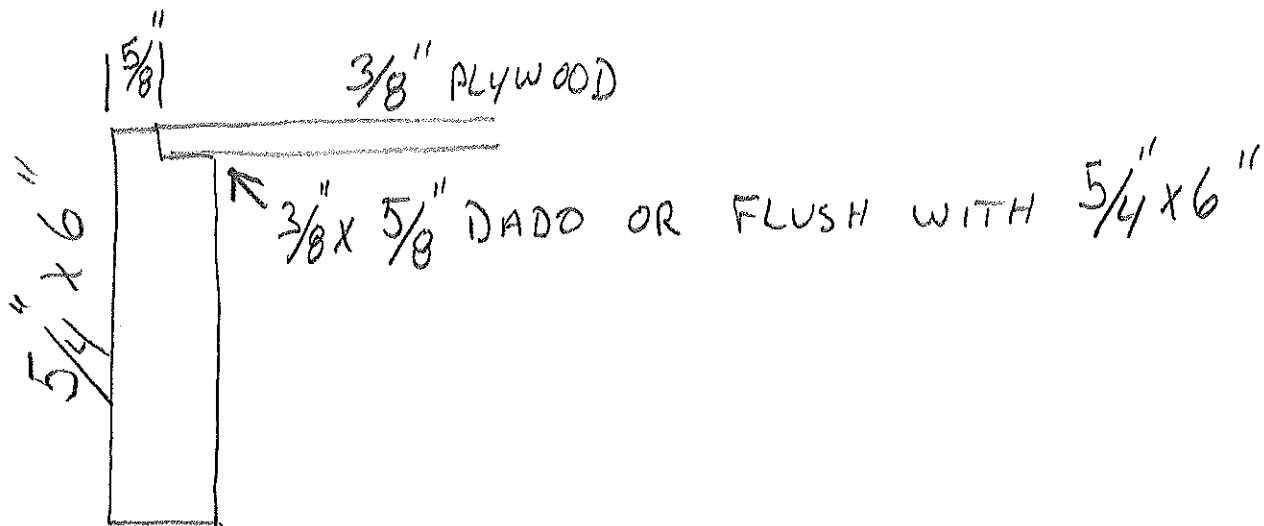 5/8"
3/8" PLYWOOD
5/4" X 6"
3/8" X 5/8" DADO OR FLUSH WITH 5/4" X 6"